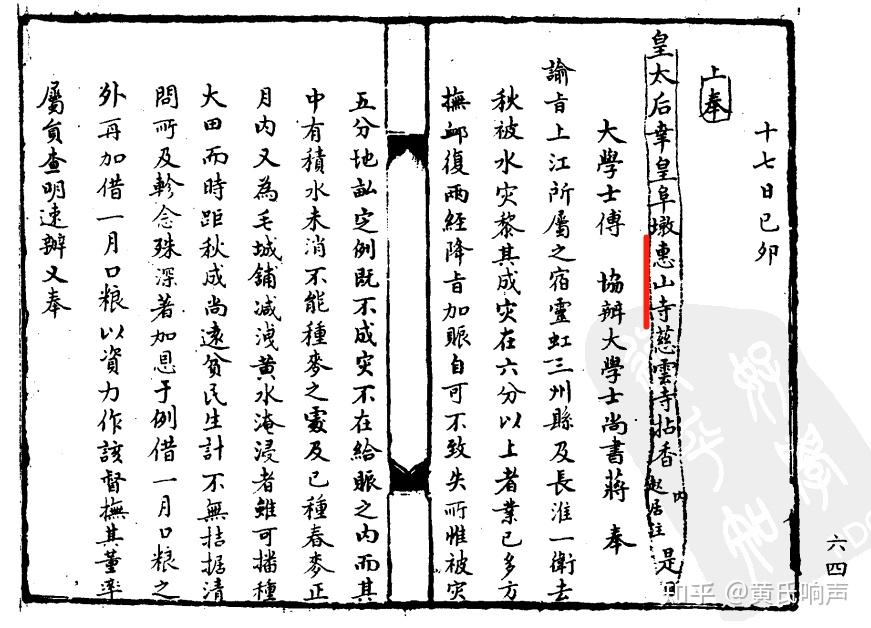 十七日己卯
上奉
皇太后幸皇阜墩惠山寺慈雲寺拈香內起居注是日
大學士傅　協辦大學士尚書蔣　奉
諭旨上江所屬之宿靈虹三州縣及長淮一衛去
秋被水灾黎其成灾在六分以上者業已多方
撫䘏復兩經降旨加賑自可不致失所惟被灾
五分地畝定例既不成灾不在給賑之內而其
中有積水未消不能種麥之處及已種春麥正
月內又為毛城鋪減洩黃水淹浸者雖可播種
大田而時距秋成尚遠貧民生計不無拮据清
問所及軫念殊深著加恩于例借一月口粮之
外再加借一月口粮以資力作該督撫其董率
屬員查明速辦又奉
六四
知乎 @黄氏响声